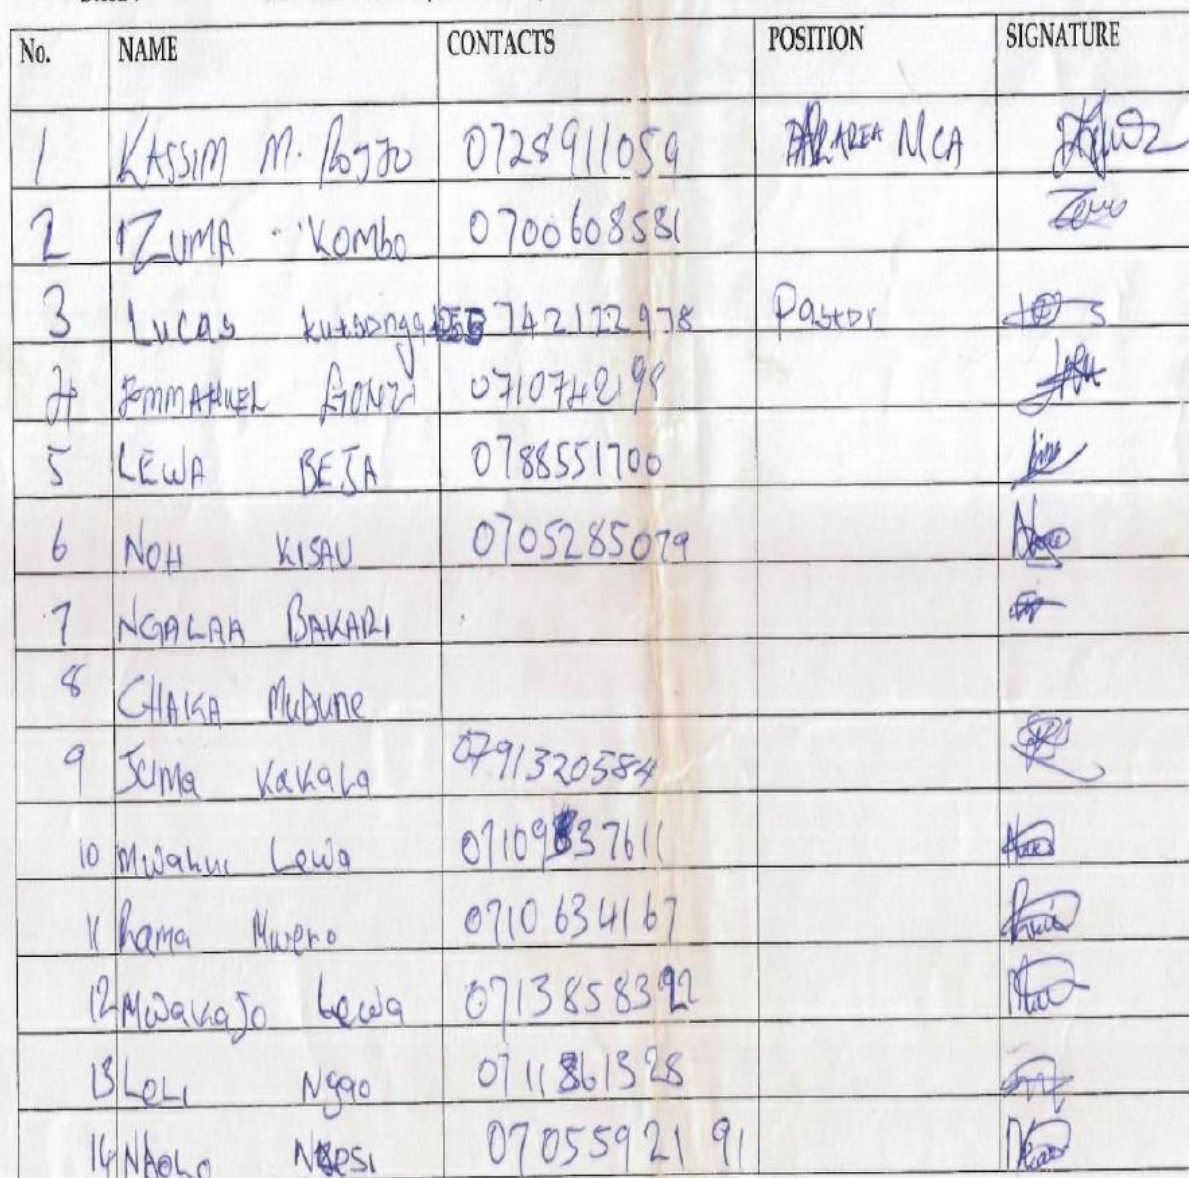 No. NAME CONTACTS POSITION SIGNATURE
1 KASSIM M. 0728911059 AREA MCA
2 ZUMA KOMBO 0700608581
3 Lucas 742122978 Pastor
4 EMMANUEL GONZI 0710742198
5 LEWA BEJA 0788551700
6 NOH KISAU 0705285079
7 NGALAA BAKARI
8 CHAKA MUDUNE
9 Juma Kakala 0791320584
10 Lewa
11 Rama Mwero 0710634167
12 Mwakajo Lewa
13 Leli Ngao
14 0705592191